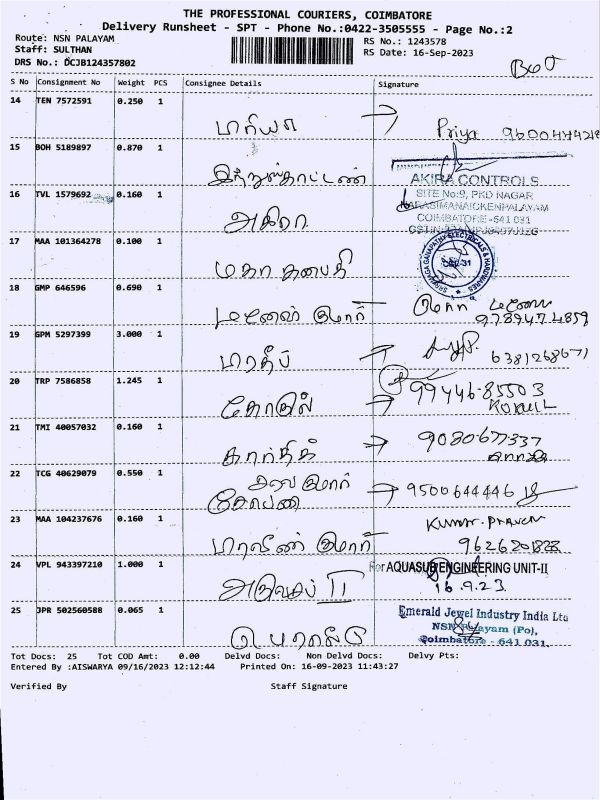 THE PROFESSIONAL COURIERS, COIMBATORE
Delivery Runsheet - SPT - Phone No.:0422-3505555 - Page No.:2
Route: NSN PALAYAM
RS No.: 1243578
Staff: SULTHAN
RS Date: 16-Sep-2023
DRS No.: DCJB124357802
S No Consignment No Weight PCS Consignee Details Signature
14 TEN 7572591 0.250 1 Priya
15 BOH 5189897 0.870 1
AKIRA CONTROLS
SITE No:9, PKD NAGAR
16 TVL 1579692 0.160 1 அகிரா
NARASIMANAICKENPALAYAM
COIMBATORE-641 031
17 MAA 101364278 0.100 1 மகா கணபதி
18 GMP 646596 0.690 1 குமார்
9789474859
19 GPM 5297399 3.000 1 பிரதீப் 6381268671
20 TRP 7586858 1.245 1 கோகுல் 99446-85503
KOKUL
21 TMI 40057032 0.160 1 கார்த்திக் 9080677337
22 TCG 40629079 0.550 1 குமார் 9500644446
கோவை
23 MAA 104237676 0.160 1 பிரவீன் குமார் KUMAR. PRAVEN
24 VPL 943397210 1.000 1 For AQUASUB ENGINEERING UNIT-II
16.9.23
25 JPR 502560588 0.065 1 Emerald Jewel Industry India Ltd
NSN Palayam (Po),
Coimbatore - 641 031.
Tot Docs: 25 Tot COD Amt: 0.00 Delvd Docs: Non Delvd Docs: Delvy Pts:
Entered By :AISWARYA 09/16/2023 12:12:44 Printed On: 16-09-2023 11:43:27
Verified By Staff Signature